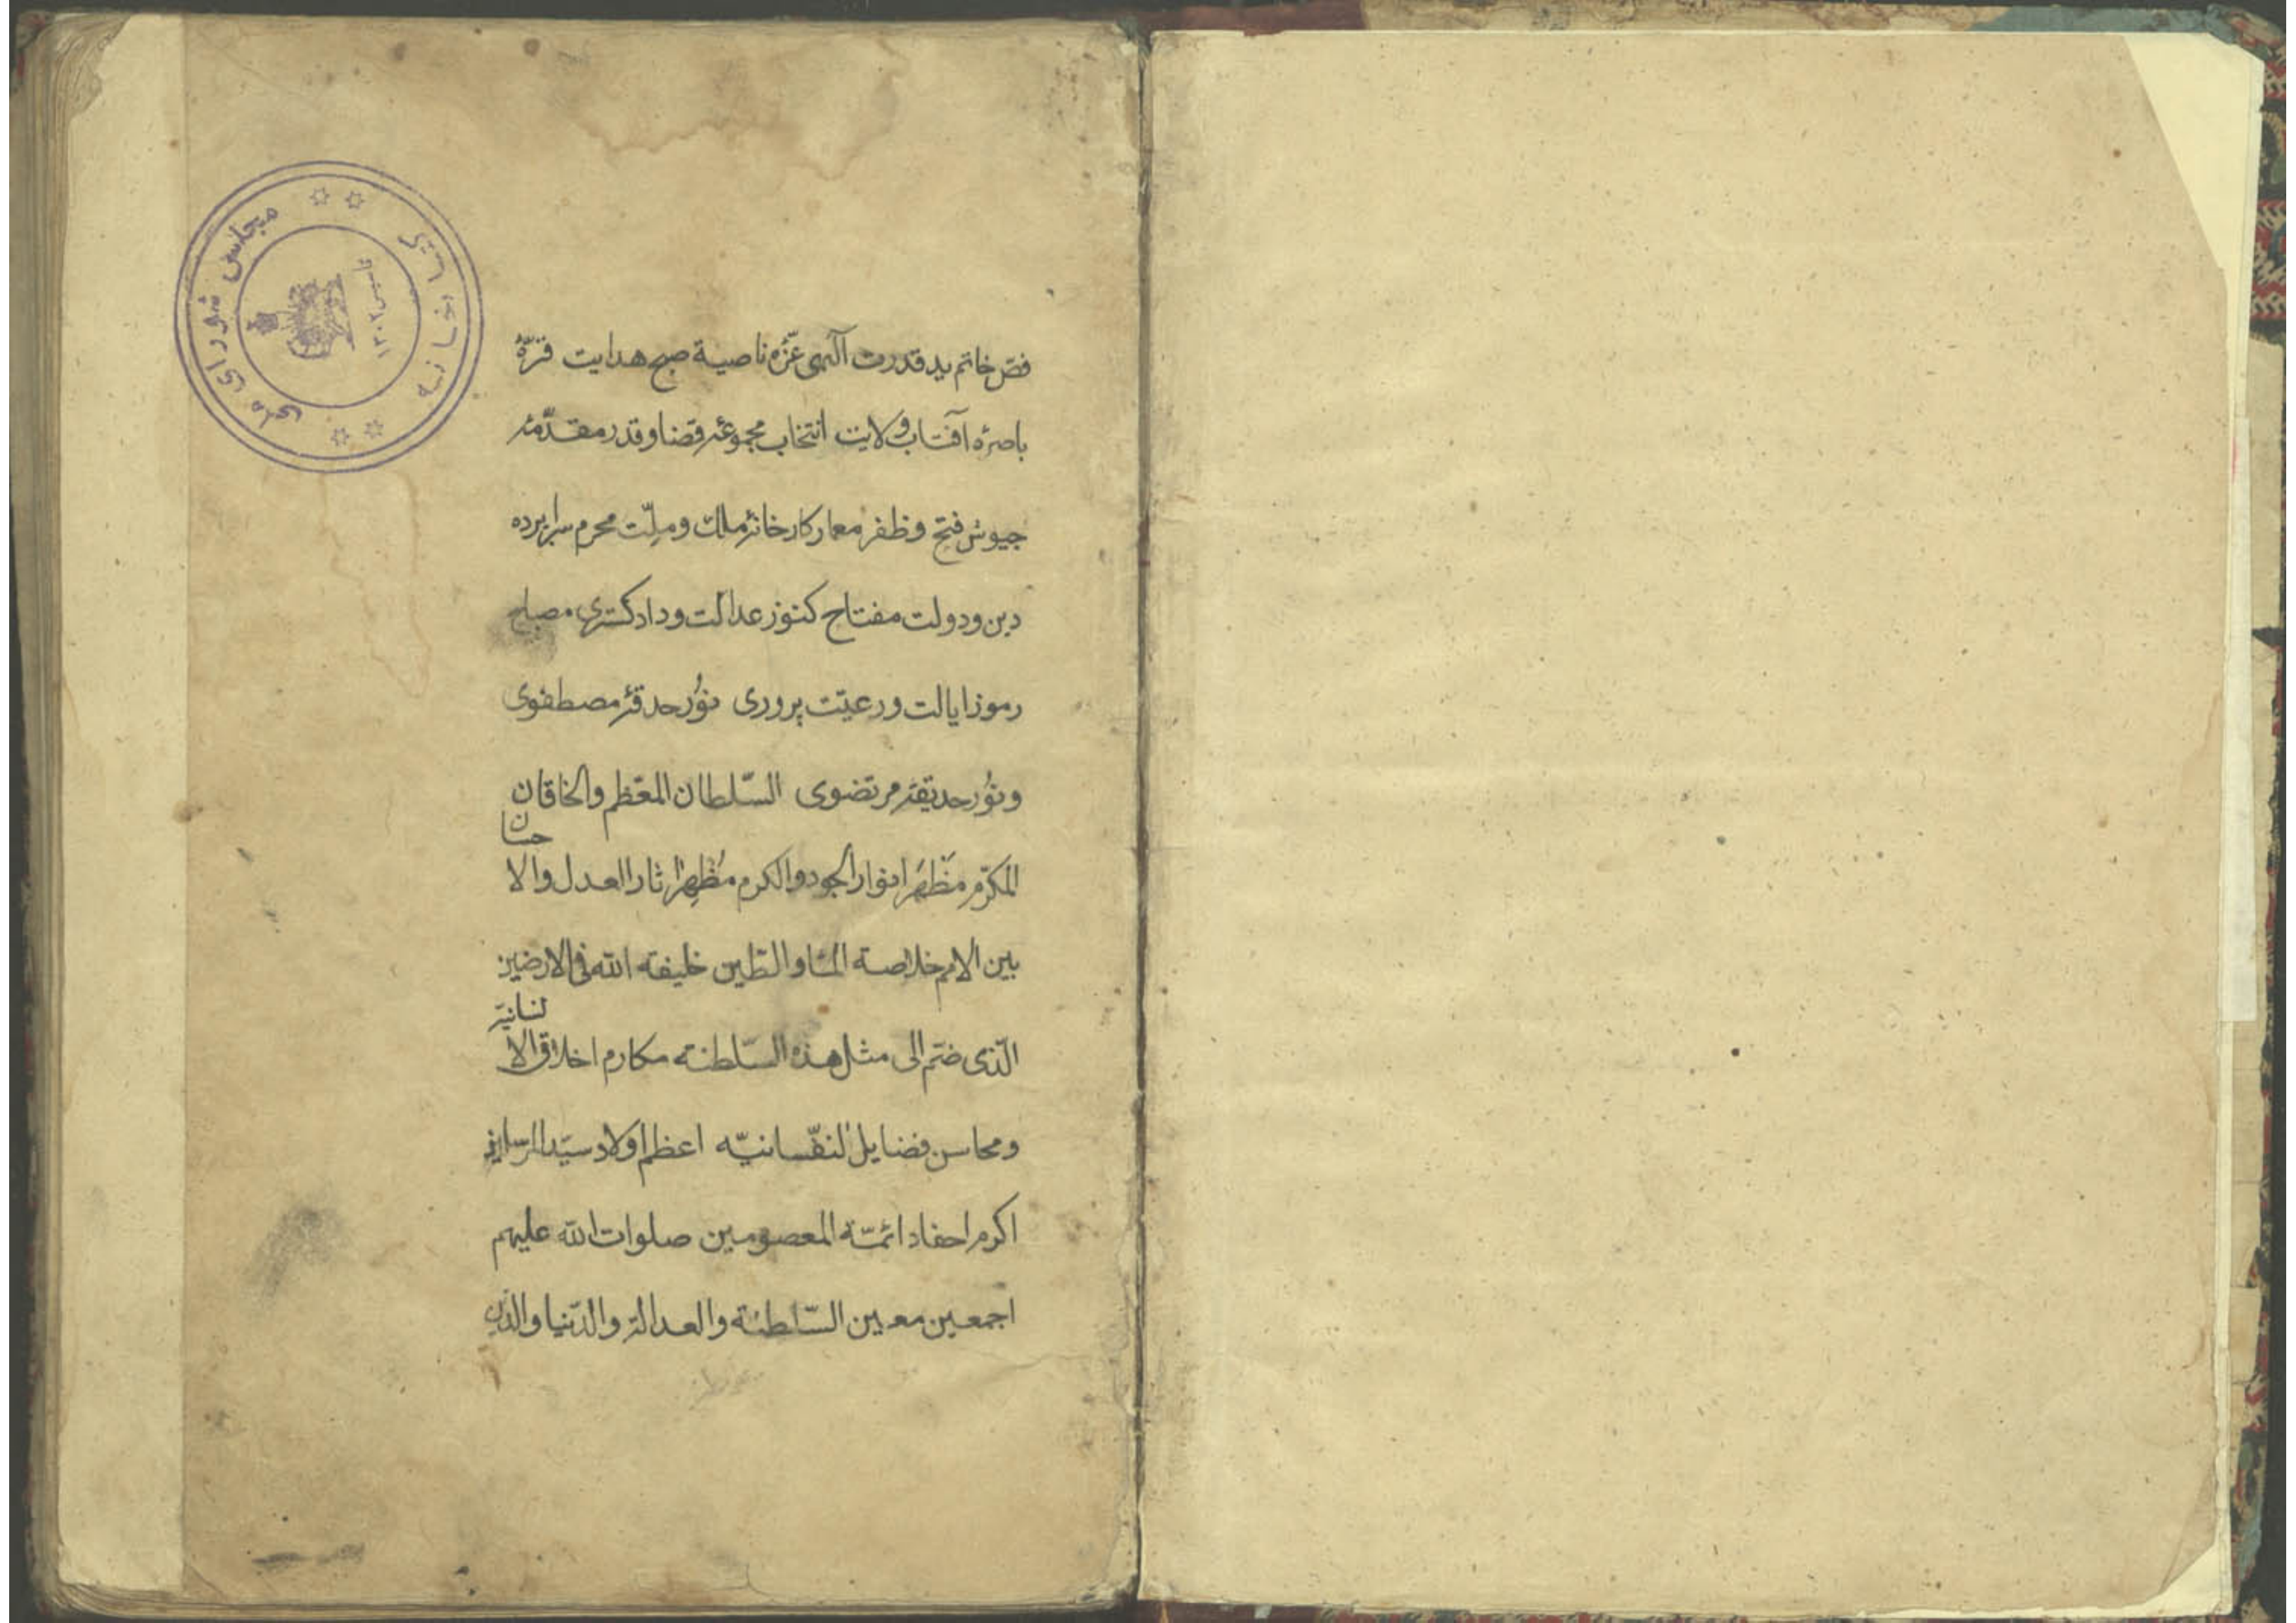 مجلس شورای ملی
کتابخانه
تأسیس ۱۳۰۲
فصّ خاتم ید قدرت آلهی غرّه ناصیة صبح هدایت قرّۀ
باصرۀ آفتاب ولایت انتخاب مجموعۀ قضا و قدر مقدّمۀ
جیوش فتح و ظفر معمار کارخانۀ ملک و ملّت محرم سراپرده
دین و دولت مفتاح کنوز عدالت و دادکستری مصباح
رموز ایالت و رعیّت پروری نُور حدقۀ مصطفوی
و نَوُر حدیقۀ مرتضوی السّلطان المعّظم والخاقان
المکرّم مَظهَر انوار الجود والکرم مُظهِر اثار العدل والا
حسان
بین الامم خلاصة الماء والطّین خلیفه الله فی الارضین
الّذی ضمّ الی مثل هذه السّلطنه مکارم اخلاق الا
نسانیّه
و محاسن فضایل النفّسانیّه اعظم اولاد سیّد المرسلین
اکرم احفاد ائمّة المعصومین صلوات الله علیهم
اجمعین معین السّلطنة والعدالة والدّنیا والدّین